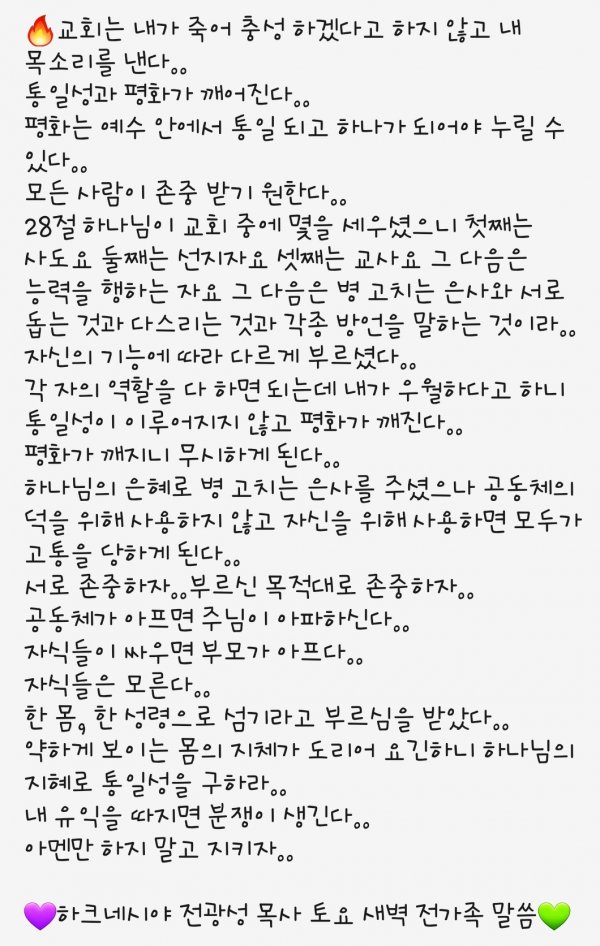 🔥교회는 내가 죽어 충성 하겠다고 하지 않고 내
목소리를 낸다。。
통일성과 평화가 깨어진다。。
평화는 예수 안에서 통일 되고 하나가 되어야 누릴 수
있다。。
모든 사람이 존중 받기 원한다。。
28절 하나님이 교회 중에 몇을 세우셨으니 첫째는
사도요 둘째는 선지자요 셋째는 교사요 그 다음은
능력을 행하는 자요 그 다음은 병 고치는 은사와 서로
돕는 것과 다스리는 것과 각종 방언을 말하는 것이라。。
자신의 기능에 따라 다르게 부르셨다。。
각 자의 역할을 다 하면 되는데 내가 우월하다고 하니
통일성이 이루어지지 않고 평화가 깨진다。。
평화가 깨지니 무시하게 된다。。
하나님의 은혜로 병 고치는 은사를 주셨으나 공동체의
덕을 위해 사용하지 않고 자신을 위해 사용하면 모두가
고통을 당하게 된다。。
서로 존중하자。。부르신 목적대로 존중하자。。
공동체가 아프면 주님이 아파하신다。。
자식들이 싸우면 부모가 아프다。。
자식들은 모른다。。
한 몸, 한 성령으로 섬기라고 부르심을 받았다。。
약하게 보이는 몸의 지체가 도리어 요긴하니 하나님의
지혜로 통일성을 구하라。。
내 유익을 따지면 분쟁이 생긴다。。
아멘만 하지 말고 지키자。。
💜하크네시야 전광성 목사 토요 새벽 전가족 말씀💚